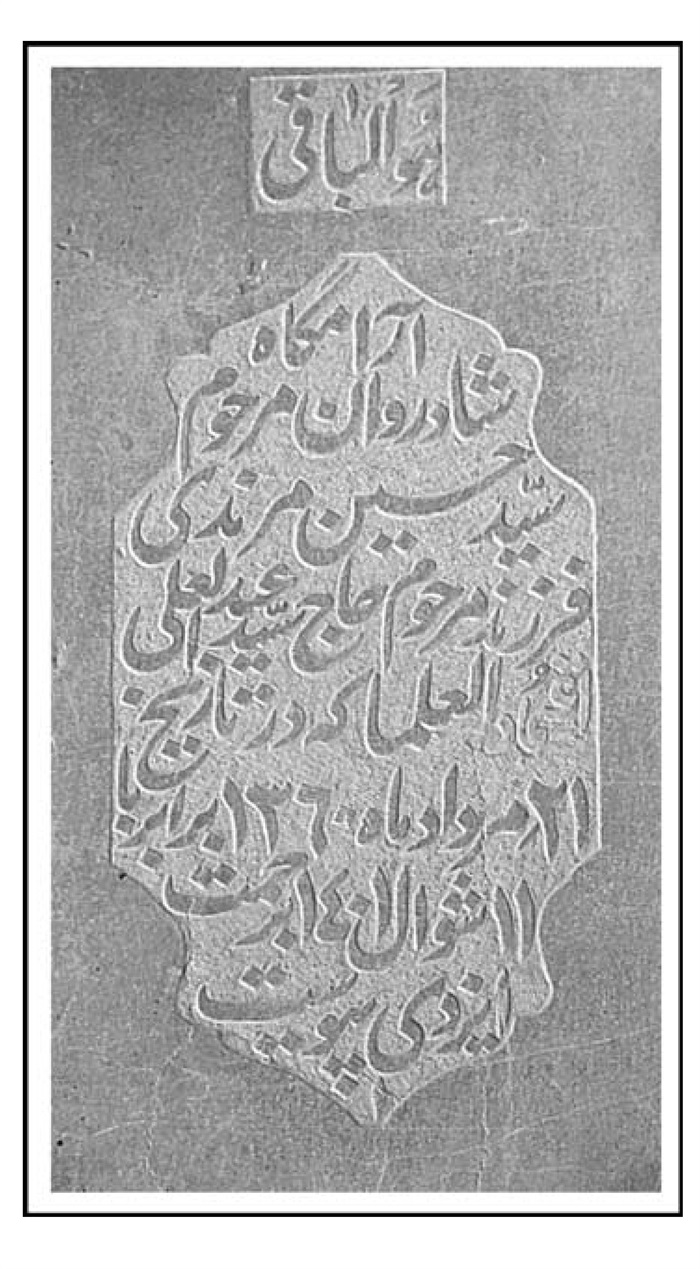 هوالباقی
آرامگاه
شادروان مرحوم
سید حسین مرندی
فرزند مرحوم حاج سید عبدالعلی
العلما که در تاریخ
۲۱ مرداد ماه ۱۳۶۰ برابر با
۱۱ شوال ۱۴۰۱ برحمت
ایزدی پیوست